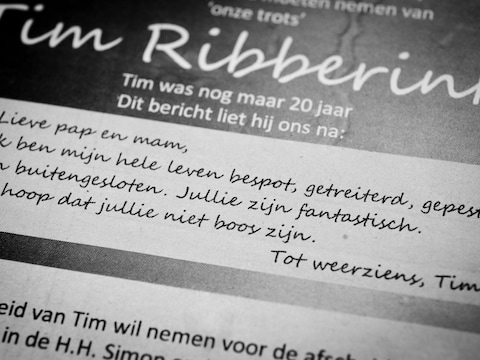 moeten nemen van
'onze trots'
Tim Ribberink
Tim was nog maar 20 jaar
Dit bericht liet hij ons na:
Lieve pap en mam,
k ben mijn hele leven bespot, getreiterd, gepest
n buitengesloten. Jullie zijn fantastisch.
hoop dat jullie niet boos zijn.
Tot weerziens, Tim
eid van Tim wil nemen voor de
in de H.H. Simon